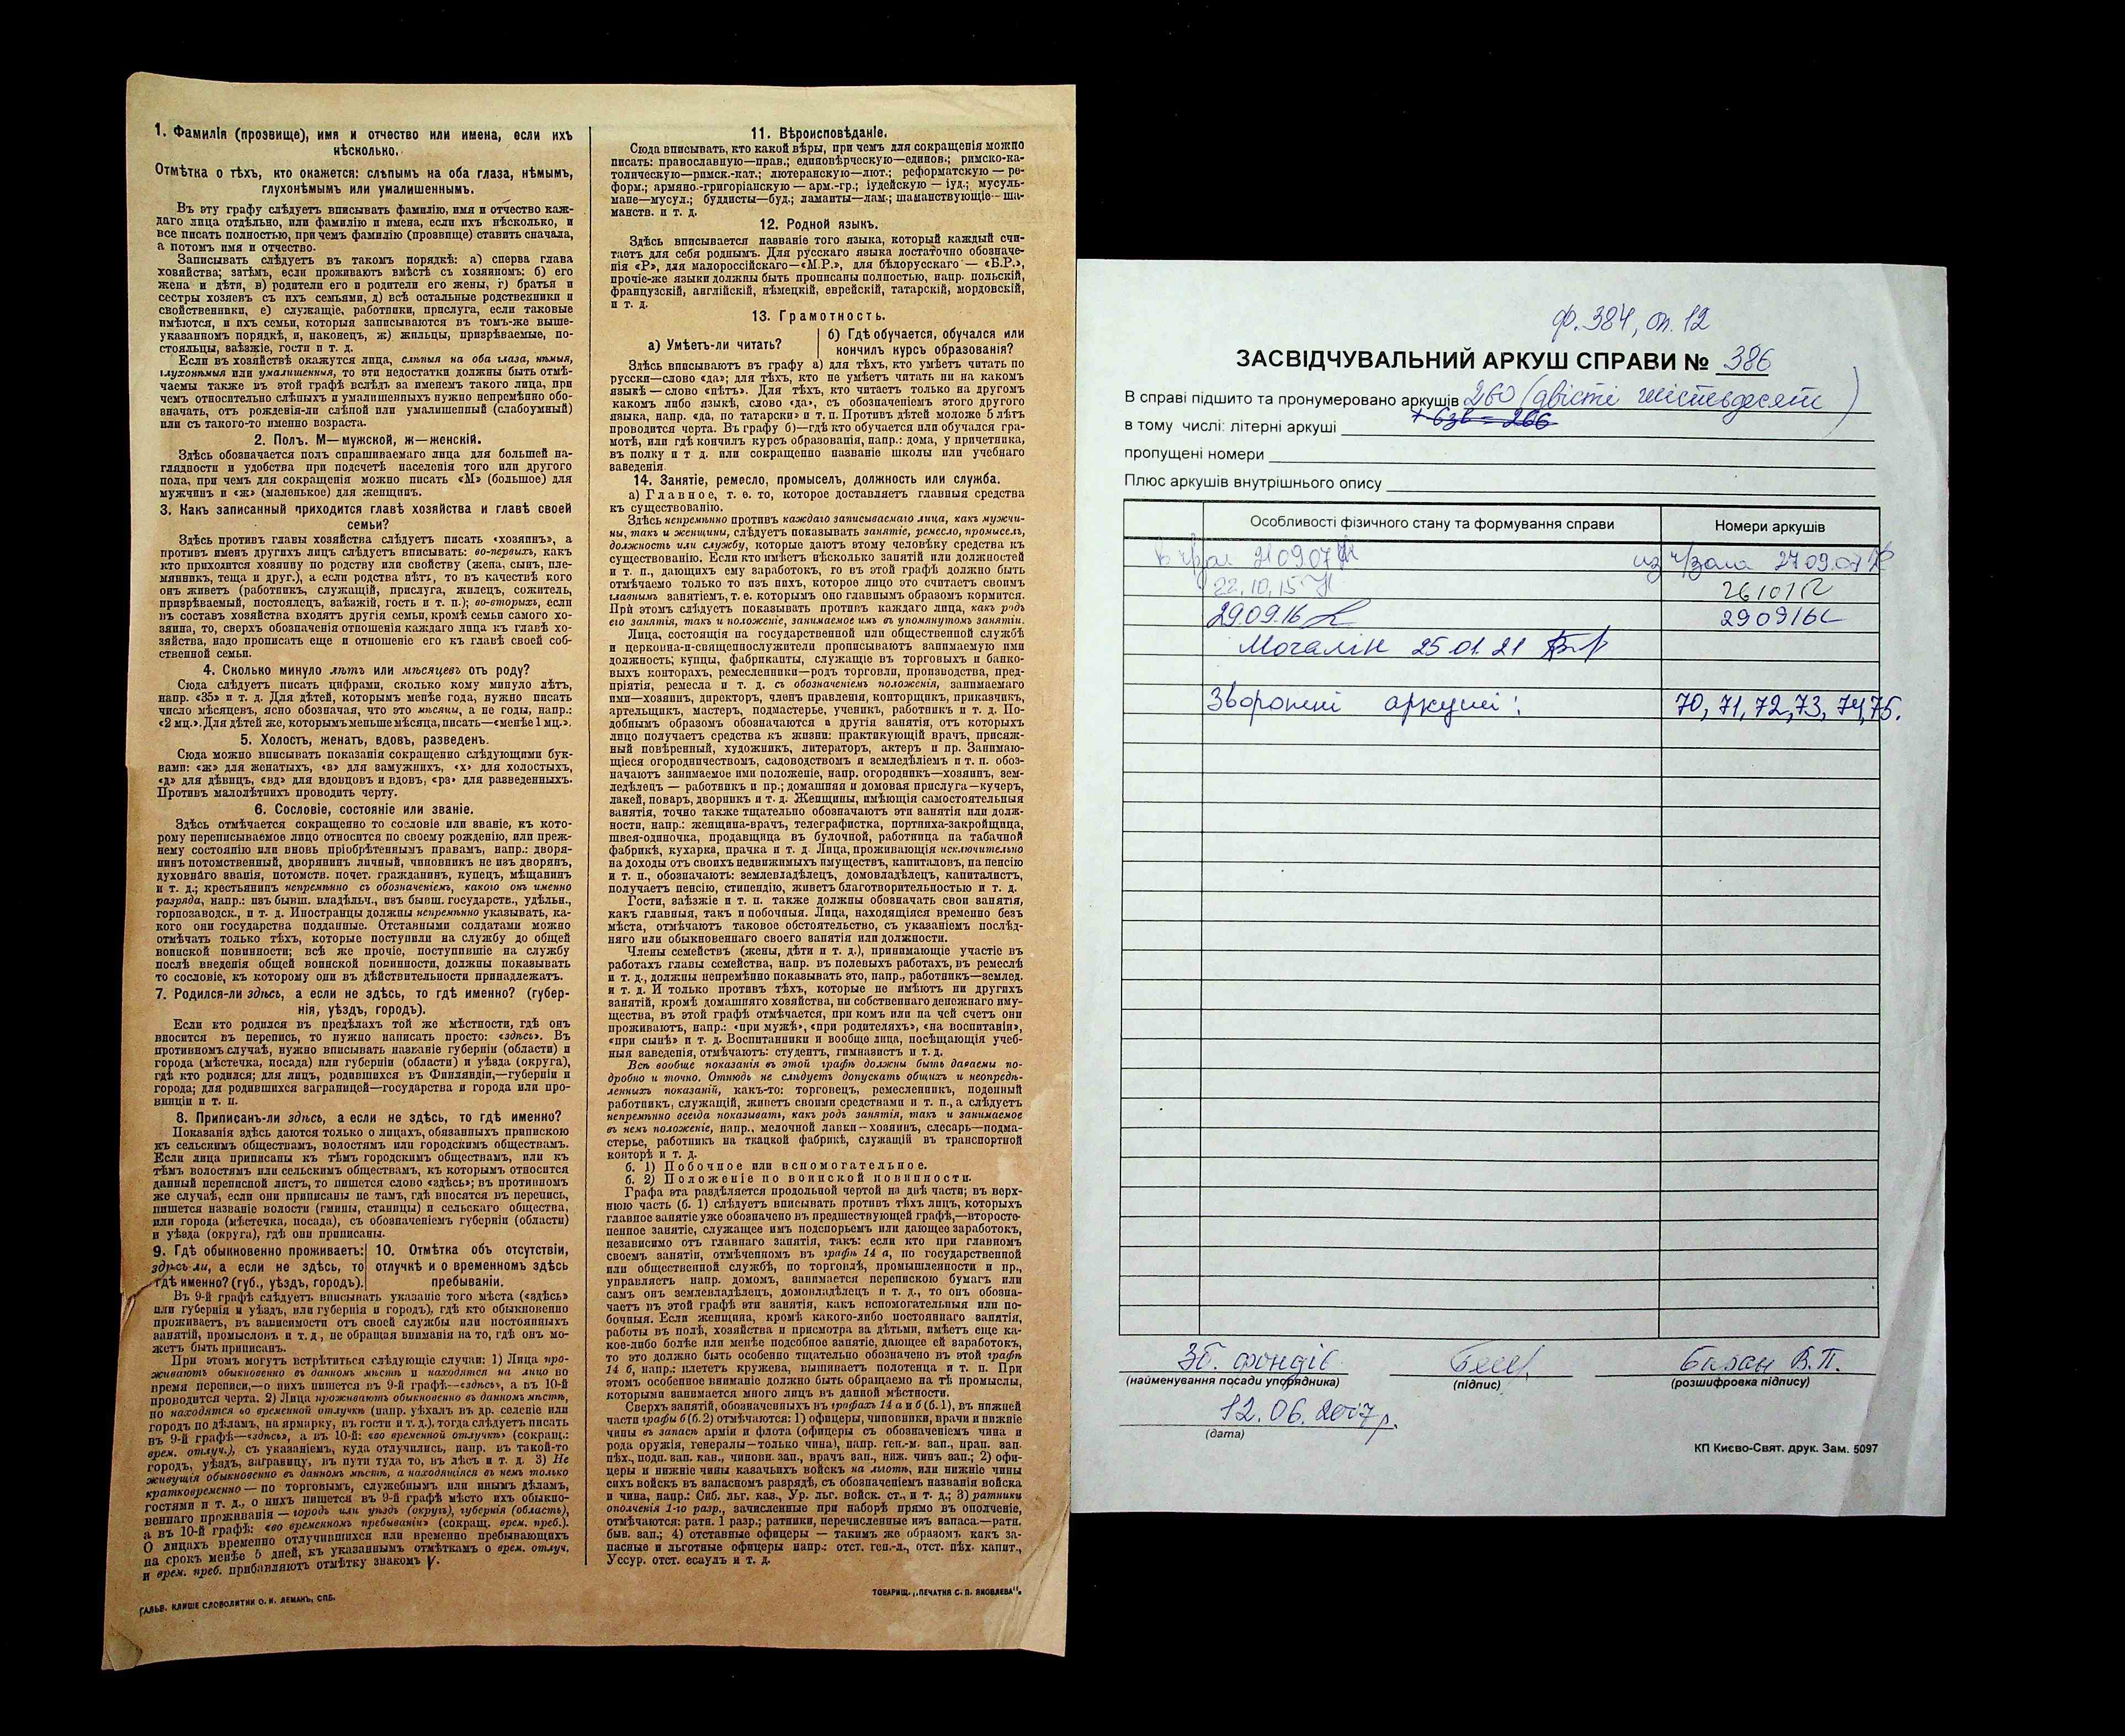 1. Фамилія (прозвище), имя и отчество или имена, если ихъ
нѣсколько.
Отмѣтка о тѣхъ, кто окажется: слѣпымъ на оба глаза, нѣмымъ,
глухонѣмымъ или умалишеннымъ.
Въ эту графу слѣдуетъ вписывать фамилію, имя и отчество каж-
даго лица отдѣльно, или фамилію и имена, если ихъ нѣсколько, и
все писать полностью, при чемъ фамилію (прозвище) ставить сначала,
а потомъ имя и отчество.
Записывать слѣдуетъ въ такомъ порядкѣ: а) сперва глава
хозяйства; затѣмъ, если проживаютъ вмѣстѣ съ хозяиномъ: б) его
жена и дѣти, в) родители его и родители его жены, г) братья и
сестры хозяевъ съ ихъ семьями, д) всѣ остальные родственники и
свойственники, е) служащіе, работники, прислуга, если таковые
имѣются, и ихъ семьи, которыя записываются въ томъ-же выше-
указанномъ порядкѣ, и, наконецъ, ж) жильцы, призрѣваемые, по-
стояльцы, заѣзжіе, гости и т. д.
Если въ хозяйствѣ окажутся лица, слѣпыя на оба глаза, нѣмыя,
глухонѣмыя или умалишенныя, то эти недостатки должны быть отмѣ-
чаемы также въ этой графѣ вслѣдъ за именемъ такого лица, при
чемъ относительно слѣпыхъ и умалишенныхъ нужно непремѣнно обо-
значать, отъ рожденія-ли слѣпой или умалишенный (слабоумный)
или съ такого-то именно возраста.
2. Полъ. М—мужской, ж—женскій.
Здѣсь обозначается полъ спрашиваемаго лица для большей на-
глядности и удобства при подсчетѣ населенія того или другого
пола, при чемъ для сокращенія можно писать «М» (большое) для
мужчинъ и «ж» (маленькое) для женщинъ.
3. Какъ записанный приходится главѣ хозяйства и главѣ своей
семьи?
Здѣсь противъ главы хозяйства слѣдуетъ писать «хозяинъ», а
противъ именъ другихъ лицъ слѣдуетъ вписывать: во-первыхъ, какъ
кто приходится хозяину по родству или свойству (жена, сынъ, пле-
мянникъ, теща и друг.), а если родства нѣтъ, то въ качествѣ кого
онъ живетъ (работникъ, служащій, прислуга, жилецъ, сожитель,
призрѣваемый, постоялецъ, заѣзжій, гость и т. п.); во-вторыхъ, если
въ составъ хозяйства входятъ другія семьи, кромѣ семьи самого хо-
зяина, то, сверхъ обозначенія отношенія каждаго лица къ главѣ хо-
зяйства, надо прописать еще и отношеніе его къ главѣ своей соб-
ственной семьи.
4. Сколько минуло лѣтъ или мѣсяцевъ отъ роду?
Сюда слѣдуетъ писать цифрами, сколько кому минуло лѣтъ,
напр. «35» и т. д. Для дѣтей, которымъ менѣе года, нужно писать
число мѣсяцевъ, ясно обозначая, что это мѣсяцы, а не годы, напр.:
«2 мц.». Для дѣтей же, которымъ меньше мѣсяца, писать—«менѣе 1 мц.».
5. Холостъ, женатъ, вдовъ, разведенъ.
Сюда можно вписывать показанія сокращенно слѣдующими бук-
вами: «ж» для женатыхъ, «з» для замужнихъ, «х» для холостыхъ,
«д» для дѣвицъ, «вд» для вдовцовъ и вдовъ, «ра» для разведенныхъ.
Противъ малолѣтнихъ проводить черту.
6. Сословіе, состояніе или званіе.
Здѣсь отмѣчается сокращенно то сословіе или званіе, къ кото-
рому переписываемое лицо относится по своему рожденію, или преж-
нему состоянію или вновь пріобрѣтеннымъ правамъ, напр.: дворя-
нинъ потомственный, дворянинъ личный, чиновникъ не изъ дворянъ,
духовнаго званія, потомств. почет. гражданинъ, купецъ, мѣщанинъ
и т. д.; крестьянинъ непремѣнно съ обозначеніемъ, какого онъ именно
разряда, напр.: изъ бывш. владѣльч., изъ бывш. государств., удѣльн.,
горнозаводск., и т. д. Иностранцы должны непремѣнно указывать, ка-
кого они государства подданные. Отставными солдатами можно
отмѣчать только тѣхъ, которые поступили на службу до общей
воинской повинности; всѣ же прочіе, поступившіе на службу
послѣ введенія общей воинской повинности, должны показывать
то сословіе, къ которому они въ дѣйствительности принадлежатъ.
7. Родился-ли здѣсь, а если не здѣсь, то гдѣ именно? (губер-
нія, уѣздъ, городъ).
Если кто родился въ предѣлахъ той же мѣстности, гдѣ онъ
вносится въ перепись, то нужно написать просто: «здѣсь». Въ
противномъ случаѣ, нужно вписывать названіе губерніи (области) и
города (мѣстечка, посада) или губерніи (области) и уѣзда (округа),
гдѣ кто родился; для лицъ, родившихся въ Финляндіи,—губерніи и
города; для родившихся заграницей—государства и города или про-
винціи и т. п.
8. Приписанъ-ли здѣсь, а если не здѣсь, то гдѣ именно?
Показанія здѣсь даются только о лицахъ, обязанныхъ припискою
къ сельскимъ обществамъ, волостямъ или городскимъ обществамъ.
Если лица приписаны къ тѣмъ городскимъ обществамъ, или къ
тѣмъ волостямъ или сельскимъ обществамъ, къ которымъ относится
данный переписной листъ, то пишется слово «здѣсь»; въ противномъ
же случаѣ, если они приписаны не тамъ, гдѣ вносятся въ перепись,
пишется названіе волости (гмины, станицы) и сельскаго общества,
или города (мѣстечка, посада), съ обозначеніемъ губерніи (области)
и уѣзда (округа), гдѣ они приписаны.
9. Гдѣ обыкновенно проживаетъ:
здѣсь-ли, а если не здѣсь, то
гдѣ именно? (губ., уѣздъ, городъ).
10. Отмѣтка объ отсутствіи,
отлучкѣ и о временномъ здѣсь
пребываніи.
Въ 9-й графѣ слѣдуетъ вписывать указаніе того мѣста («здѣсь»
или губернія и уѣздъ, или губернія и городъ), гдѣ кто обыкновенно
проживаетъ, въ зависимости отъ своей службы или постоянныхъ
занятій, промысловъ и т. д., не обращая вниманія на то, гдѣ онъ мо-
жетъ быть приписанъ.
При этомъ могутъ встрѣтиться слѣдующіе случаи: 1) Лица про-
живаютъ обыкновенно въ данномъ мѣстѣ и находятся на лицо во
время переписи,—о нихъ пишется въ 9-й графѣ—«здѣсь», а въ 10-й
проводится черта. 2) Лица проживаютъ обыкновенно въ данномъ мѣстѣ,
но находятся во временной отлучкѣ (напр. уѣхалъ въ др. селеніе или
городъ по дѣламъ, на ярмарку, въ гости и т. д.), тогда слѣдуетъ писать
въ 9-й графѣ—«здѣсь», а въ 10-й: «во временной отлучкѣ» (сокращ.:
врем. отлуч.), съ указаніемъ, куда отлучились, напр. въ такой-то
городъ, уѣздъ, заграницу, въ пути туда то, въ лѣсъ и т. д. 3) Не
живущія обыкновенно въ данномъ мѣстѣ, а находящіяся въ немъ только
кратковременно—по торговымъ, служебнымъ или инымъ дѣламъ,
гостями и т. д., о нихъ пишется въ 9-й графѣ мѣсто ихъ обыкно-
веннаго проживанія—городъ или уѣздъ (округъ), губернія (область),
а въ 10-й графѣ: «во временномъ пребываніи» (сокращ. врем. преб.).
О лицахъ временно отлучившихся или временно пребывающихъ
на срокъ менѣе 5 дней, къ указаннымъ отмѣткамъ о врем. отлуч.
и врем. преб. прибавляютъ отмѣтку знакомъ V.
ГАЛЬВ. КЛИШЕ СЛОВОЛИТНИ О. И. ЛЕМАНЪ, СПБ.
11. Вѣроисповѣданіе.
Сюда вписывать, кто какой вѣры, при чемъ для сокращенія можно
писать: православную—прав.; единовѣрческую—единов.; римско-ка-
толическую—римск.-кат.; лютеранскую—лют.; реформатскую—ре-
форм.; армяно-григоріанскую—арм.-гр.; іудейскую—іуд.; мусуль-
мане—мусул.; буддисты—буд.; ламаиты—лам.; шаманствующіе—ша-
манств. и т. д.
12. Родной языкъ.
Здѣсь вписывается названіе того языка, который каждый счи-
таетъ для себя роднымъ. Для русскаго языка достаточно обозначе-
нія «Р», для малороссійскаго—«М.Р.», для бѣлорусскаго—«Б.Р.»,
прочіе-же языки должны быть прописаны полностью, напр. польскій,
французскій, англійскій, нѣмецкій, еврейскій, татарскій, мордовскій,
и т. д.
13. Грамотность.
а) Умѣетъ-ли читать?
б) Гдѣ обучается, обучался или
кончилъ курсъ образованія?
Здѣсь вписываютъ въ графу а) для тѣхъ, кто умѣетъ читать по
русски—слово «да»; для тѣхъ, кто не умѣетъ читать ни на какомъ
языкѣ—слово «нѣтъ». Для тѣхъ, кто читаетъ только на другомъ
какомъ либо языкѣ, слово «да», съ обозначеніемъ этого другого
языка, напр. «да, по татарски» и т. п. Противъ дѣтей моложе 5 лѣтъ
проводится черта. Въ графу б)—гдѣ кто обучается или обучался гра-
мотѣ, или гдѣ кончилъ курсъ образованія, напр.: дома, у причетника,
въ полку и т д. или сокращенно названіе школы или учебнаго
заведенія.
14. Занятіе, ремесло, промыселъ, должность или служба.
а) Главное, т. е. то, которое доставляетъ главныя средства
къ существованію.
Здѣсь непремѣнно противъ каждаго записываемаго лица, какъ мужчи-
ны, такъ и женщины, слѣдуетъ показывать занятіе, ремесло, промыселъ,
должность или службу, которые даютъ этому человѣку средства къ
существованію. Если кто имѣетъ нѣсколько занятій или должностей
и т. п., дающихъ ему заработокъ, то въ этой графѣ должно быть
отмѣчаемо только то изъ нихъ, которое лицо это считаетъ своимъ
главнымъ занятіемъ, т. е. которымъ оно главнымъ образомъ кормится.
При этомъ слѣдуетъ показывать противъ каждаго лица, какъ родъ
его занятія, такъ и положеніе, занимаемое имъ въ упомянутомъ занятіи.
Лица, состоящія на государственной или общественной службѣ
и церковно-и-священнослужители прописываютъ занимаемую ими
должность; купцы, фабриканты, служащіе въ торговыхъ и банко-
выхъ конторахъ, ремесленники—родъ торговли, производства, пред-
пріятія, ремесла и т. д. съ обозначеніемъ положенія, занимаемаго
ими—хозяинъ, директоръ, членъ правленія, конторщикъ, приказчикъ,
артельщикъ, мастеръ, подмастерье, ученикъ, работникъ и т. д. По-
добнымъ образомъ обозначаются и другія занятія, отъ которыхъ
лицо получаетъ средства къ жизни: практикующій врачъ, присяж-
ный повѣренный, художникъ, литераторъ, актеръ и пр. Занимаю-
щіеся огородничествомъ, садоводствомъ и земледѣліемъ и т. п. обоз-
начаютъ занимаемое ими положеніе, напр. огородникъ—хозяинъ, зем-
ледѣлецъ — работникъ и пр.; домашняя и домовая прислуга—кучеръ,
лакей, поваръ, дворникъ и т. д. Женщины, имѣющія самостоятельныя
занятія, точно также тщательно обозначаютъ эти занятія или долж-
ности, напр.: женщина-врачъ, телеграфистка, портниха-закройщица,
швея-одиночка, продавщица въ булочной, работница на табачной
фабрикѣ, кухарка, прачка и т. д. Лица, проживающія исключительно
на доходы отъ своихъ недвижимыхъ имуществъ, капиталовъ, на пенсію
и т. п., обозначаютъ: землевладѣлецъ, домовладѣлецъ, капиталистъ,
получаетъ пенсію, стипендію, живетъ благотворительностью и т. д.
Гости, заѣзжіе и т. п. также должны обозначать свои занятія,
какъ главныя, такъ и побочныя. Лица, находящіяся временно безъ
мѣста, отмѣчаютъ таковое обстоятельство, съ указаніемъ послѣд-
няго или обыкновеннаго своего занятія или должности.
Члены семействъ (жены, дѣти и т. д.), принимающіе участіе въ
работахъ главы семейства, напр. въ полевыхъ работахъ, въ ремеслѣ
и т. д., должны непремѣнно показывать это, напр., работникъ—землед.
и т. д. И только противъ тѣхъ, которые не имѣютъ ни другихъ
занятій, кромѣ домашняго хозяйства, ни собственнаго денежнаго иму-
щества, въ этой графѣ отмѣчается, при комъ или на чей счетъ они
проживаютъ, напр.: «при мужѣ», «при родителяхъ», «на воспитаніи»,
«при сынѣ» и т. д. Воспитанники и вообще лица, посѣщающія учеб-
ныя заведенія, отмѣчаютъ: студентъ, гимназистъ и т. д.
Всѣ вообще показанія въ этой графѣ должны быть даваемы по-
дробно и точно. Отнюдь не слѣдуетъ допускать общихъ и неопредѣ-
ленныхъ показаній, какъ-то: торговецъ, ремесленникъ, поденный
работникъ, служащій, живетъ своими средствами и т. п., а слѣдуетъ
непремѣнно всегда показывать, какъ родъ занятія, такъ и занимаемое
въ немъ положеніе, напр., мелочной лавки—хозяинъ, слесарь—подма-
стерье, работникъ на ткацкой фабрикѣ, служащій въ транспортной
конторѣ и т. д.
б. 1) Побочное или вспомогательное.
б. 2) Положеніе по воинской повинности.
Графа эта раздѣляется продольной чертой на двѣ части; въ верх-
нюю часть (б. 1) слѣдуетъ вписывать противъ тѣхъ лицъ, которыхъ
главное занятіе уже обозначено въ предшествующей графѣ,—второсте-
пенное занятіе, служащее имъ подспорьемъ или дающее заработокъ,
независимо отъ главнаго занятія, такъ: если кто при главномъ
своемъ занятіи, отмѣченномъ въ графѣ 14 а, по государственной
или общественной службѣ, по торговлѣ, промышленности и пр.,
управляетъ напр. домомъ, занимается перепискою бумагъ или
самъ онъ землевладѣлецъ, домовладѣлецъ и т. д., то онъ обозна-
чаетъ въ этой графѣ эти занятія, какъ вспомогательныя или по-
бочныя. Если женщина, кромѣ какого-либо постояннаго занятія,
работы въ полѣ, хозяйства и присмотра за дѣтьми, имѣетъ еще ка-
кое-либо болѣе или менѣе подсобное занятіе, дающее ей заработокъ,
то это должно быть особенно тщательно обозначено въ этой графѣ
14 б, напр.: плететъ кружева, вышиваетъ полотенца и т. п. При
этомъ особенное вниманіе должно быть обращаемо на тѣ промыслы,
которыми занимается много лицъ въ данной мѣстности.
Сверхъ занятій, обозначенныхъ въ графахъ 14 а и б (б. 1), въ нижней
части графы б (б. 2) отмѣчаются: 1) офицеры, чиновники, врачи и нижніе
чины въ запасѣ арміи и флота (офицеры съ обозначеніемъ чина и
рода оружія, генералы—только чина), напр. ген.-м. зап., прап. зап.
пѣх., подп. зап. кав., чиновн. зап., врачъ зап., ниж. чинъ зап.; 2) офи-
церы и нижніе чины казачьихъ войскъ на льготѣ, или нижніе чины
сихъ войскъ въ запасномъ разрядѣ, съ обозначеніемъ названія войска
и чина, напр.: Сиб. льг. каз., Ур. льг. войск. ст., и т. д.; 3) ратники
ополченія 1-го разр., зачисленные при наборѣ прямо въ ополченіе,
отмѣчаются: ратн. 1 разр.; ратники, перечисленные изъ запаса.—ратн.
быв. зап.; 4) отставные офицеры — такимъ же образомъ какъ за-
пасные и льготные офицеры напр.: отст. ген.-л., отст. пѣх. капит.,
Уссур. отст. есаулъ и т. д.
ТОВАРИЩ. „ПЕЧАТНЯ С. П. ЯКОВЛЕВА".
ф. 384, оп. 12
ЗАСВІДЧУВАЛЬНИЙ АРКУШ СПРАВИ № 386
В справі підшито та пронумеровано аркушів 260 (двісті шістьдесят)
в тому числі: літерні аркуші
пропущені номери
Плюс аркушів внутрішнього опису
Особливості фізичного стану та формування справи
Номери аркушів
21 09.07
из ч/зала 27 09.07
22.10.15
29.09.16
290916
Мочалін 25 01 21
Зворотні аркуші:
70, 71, 72, 73, 74, 75.
Зб. фондів
Бабан В. П.
(найменування посади упорядника)
(підпис)
(розшифровка підпису)
12. 06. 2007 р.
(дата)
КП Києво-Свят. друк. Зам. 5097